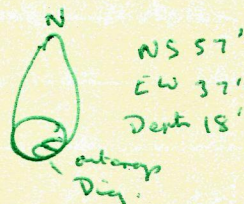 N
NS 57'
EW 37'
Depth 18'
outcrop
Dig.